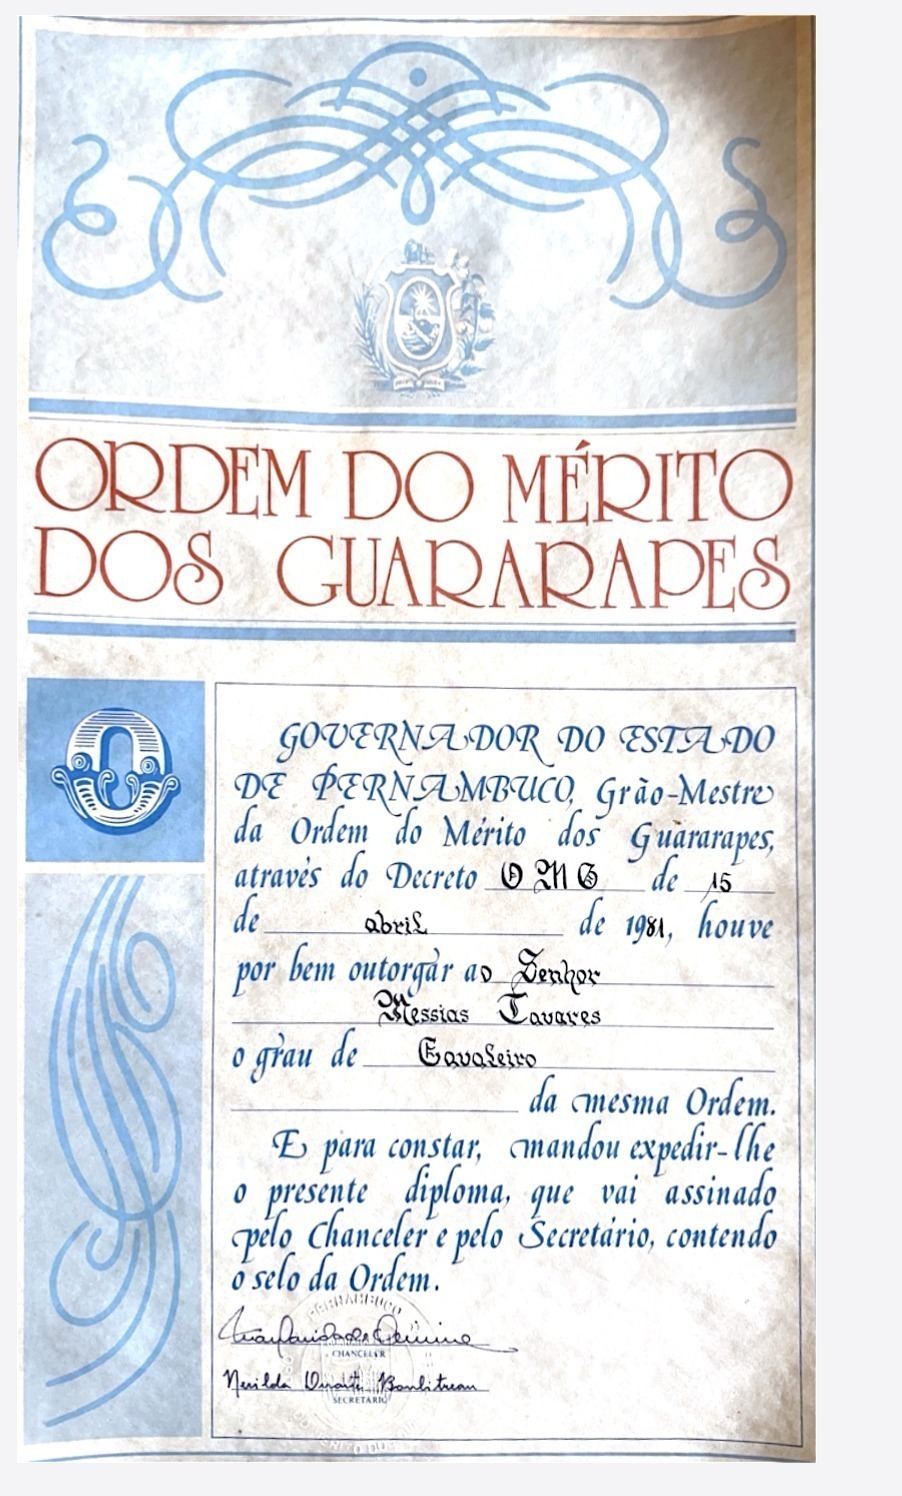 ORDEM DO MÉRITO
DOS GUARARAPES
O
GOVERNADOR DO ESTADO
DE PERNAMBUCO, Grão-Mestre
da Ordem do Mérito dos Guararapes,
através do Decreto OMG de 15
de abril de 1981, houve
por bem outorgar ao Senhor
Messias Tavares
o grau de Cavaleiro
da mesma Ordem.
E para constar, mandou expedir-lhe
o presente diploma, que vai assinado
pelo Chanceler e pelo Secretário, contendo
o selo da Ordem.
PERNAMBUCO
CHANCELER
SECRETÁRIO